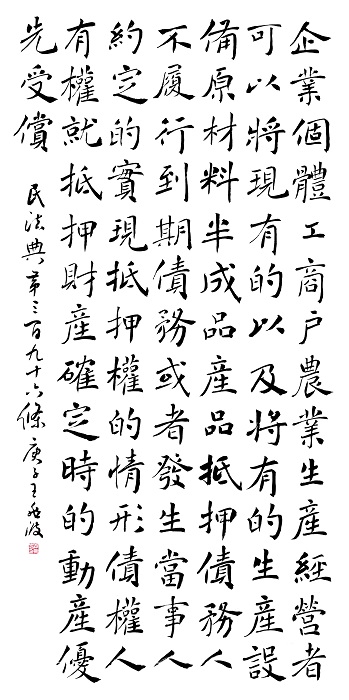 企業個體工商戶農業生產經營者
可以將現有的以及將有的生產設
備原材料半成品產品抵押債務人
不履行到期債務或者發生當事人
約定的實現抵押權的情形債權人
有權就抵押財產確定時的動產優
先受償
民法典第三百九十六條 庚子王